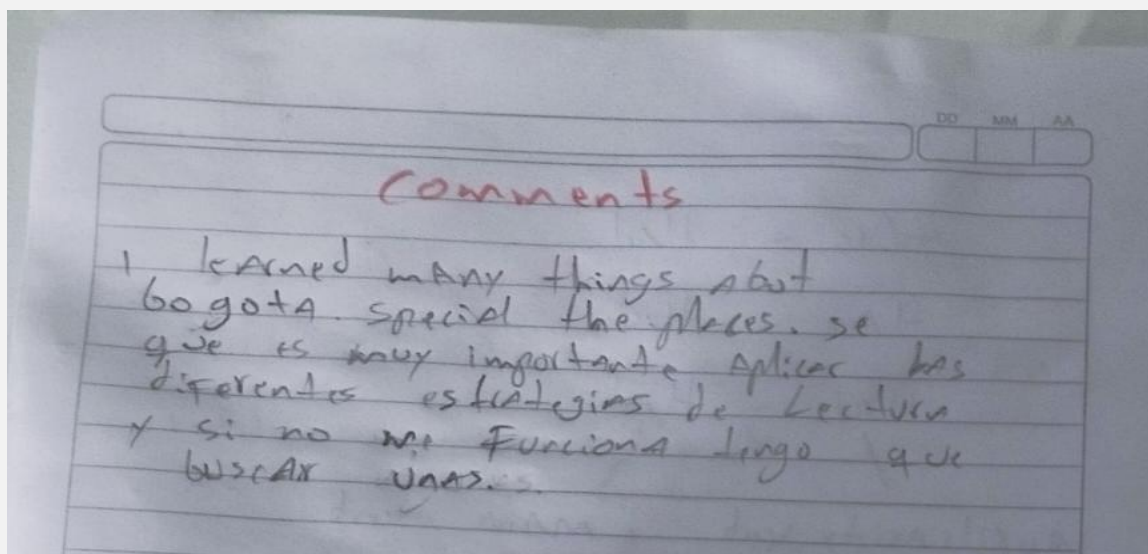 DD MM AA
Comments
I learned many things about
bogotA. special the places. se
que es muy importante Aplicar las
diferentes estrategias de Lectura
y si no me Funciona tengo que
buscAr unas.